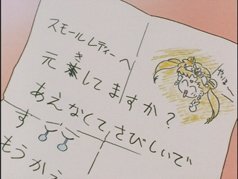 スモールレディーへ
元気してますか?
あえなくてさびしいで
す
もうかう
やほー